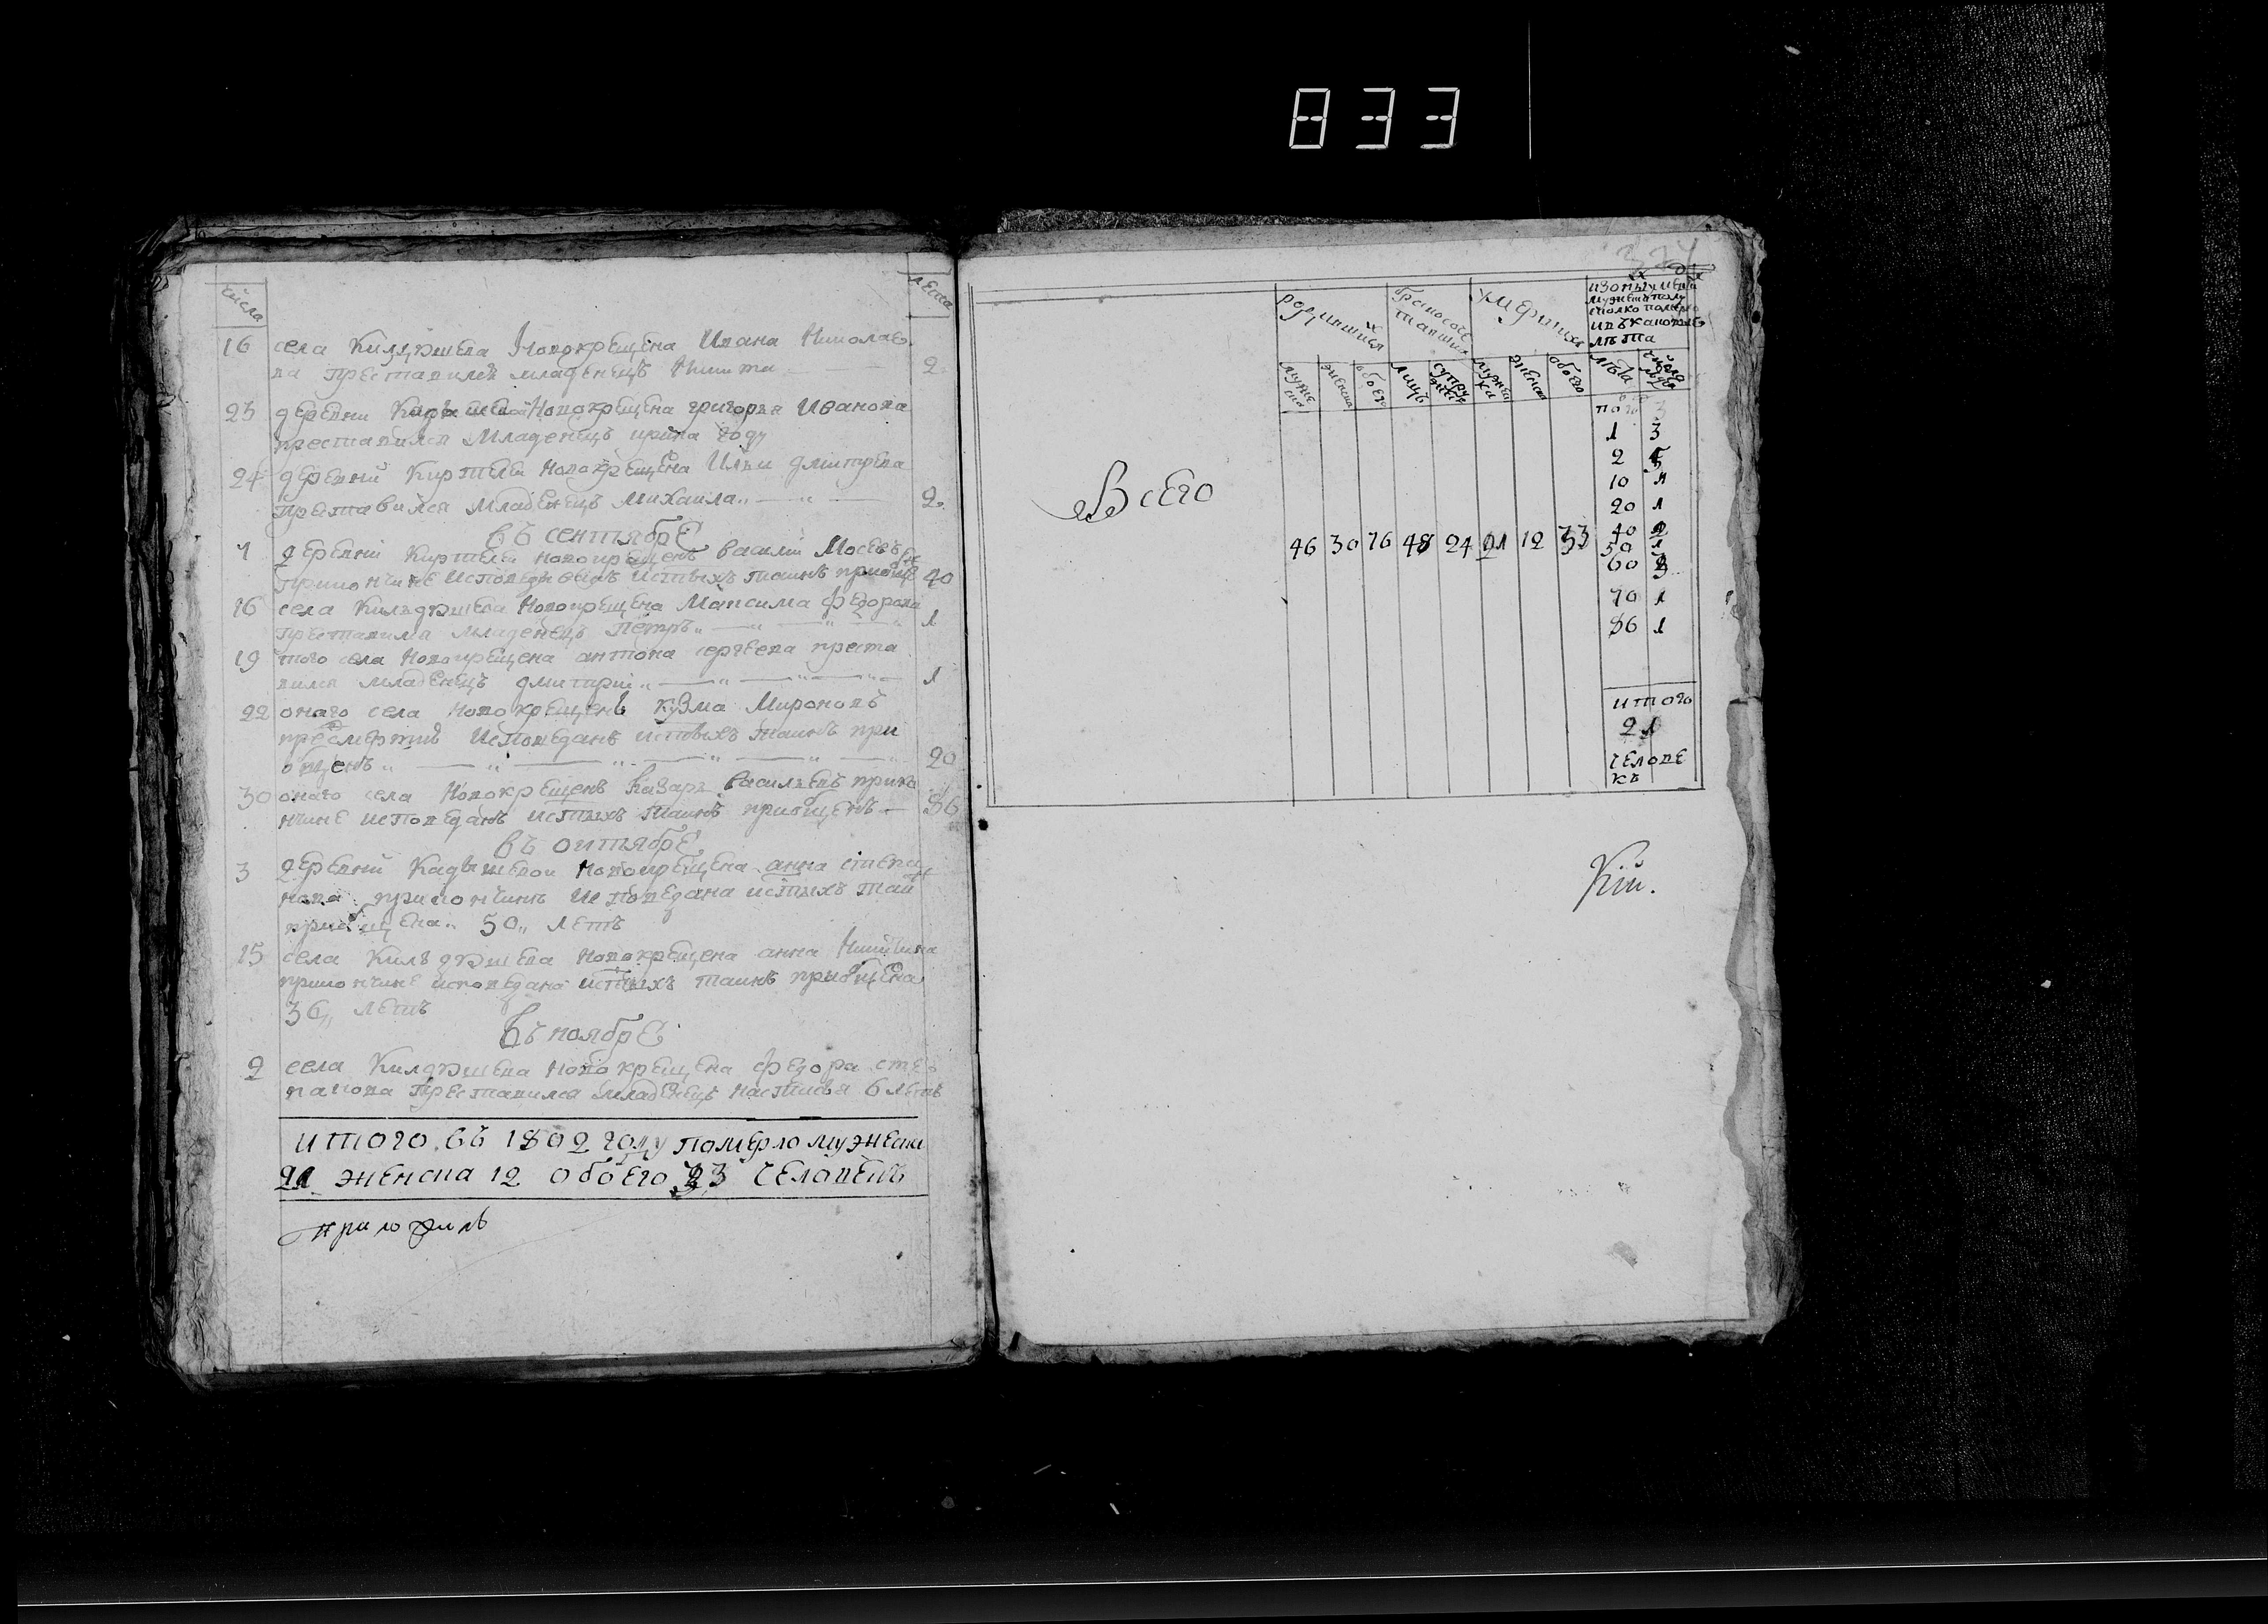 833
числа
лета
16 села Килдюшева Новокрещена Ивана Николае
ва преставился младенецъ Никита 2
23 деревни Новокрещена григорья Иванова
преставился младенецъ ирина году
24 деревни Киртели новокрещена Ильи дмитрева
преставился младенецъ михаила 2
въ сентябрЕ
7 деревни Киртели новокрещенъ василий Мосеевъ
прикончине исповеданъ истыхъ таинъ приобще 40
16 села Кильдюшева новокрещена Максима федорова
преставился младенецъ петръ 1
19 того села новокрещена антона сергеева преста
вился младенецъ дмитрий 1
22 онаго села новокрещенъ кузма Мироновъ
пресмертию исповеданъ истыхъ таинъ при
общенъ 20
30 онаго села новокрещенъ василъевъ прико
нчине исповеданъ истыхъ таинъ приобщенъ 86
въ октябрЕ
3 деревни Кадышевой новокрещена анна степа
нова прикончине исповедана истыхъ таи
приобщена 50 летъ
15 села Килъдюшева новокрещена анна Никитина
прикончине исповедана истыхъ таинъ приобщена
36 летъ
въ ноябрЕ
2 села Килдюшева новокрещена федора сте
панова преставился младенецъ настасья 6 летъ
итого въ 1802 году померло мужеска
21 женска 12 обоего 33 человекъ
приложилъ
родившихся
бракосоче тавшихся
умерших
изоныхумерших
мужескъполу
сколко померло
ивъкакомъ
лѣта
муже ска
женска
обоего
лицъ
супру жествъ
мужеска
женска
обоего
лѣта
число людей
Всего
46 30 76 48 24 21 12 33
по 3
1 3
2 5
10 1
20 1
40 2
50 1
60 3
70 1
86 1
итого
21
человЕ
къ
Кій.